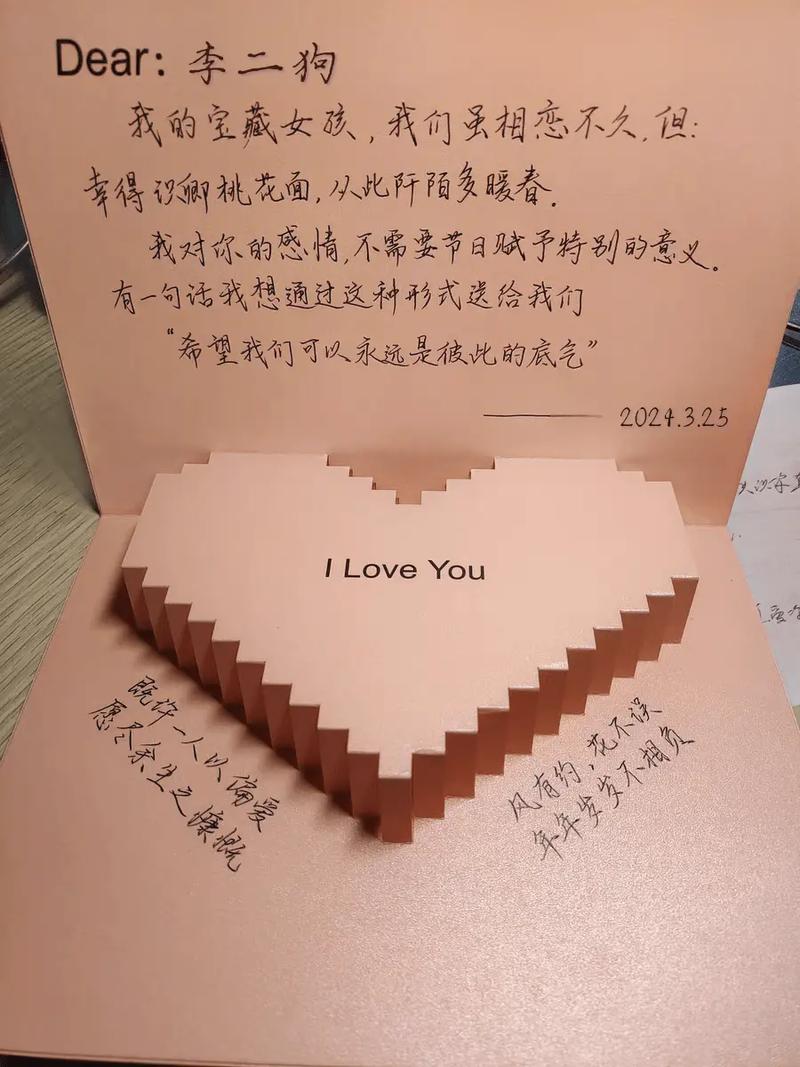 Dear: 李二狗
我的宝藏女孩,我们虽相恋不久,但:
幸得识卿桃花面,从此阡陌多暖春.
我对你的感情,不需要节日赋予特别的意义。
有一句话我想通过这种形式送给我们
“希望我们可以永远是彼此的底气”
——— 2024.3.25
I Love You
既许一人以偏爱
愿尽余生之慷慨
风有约,花不误
年年岁岁不相负